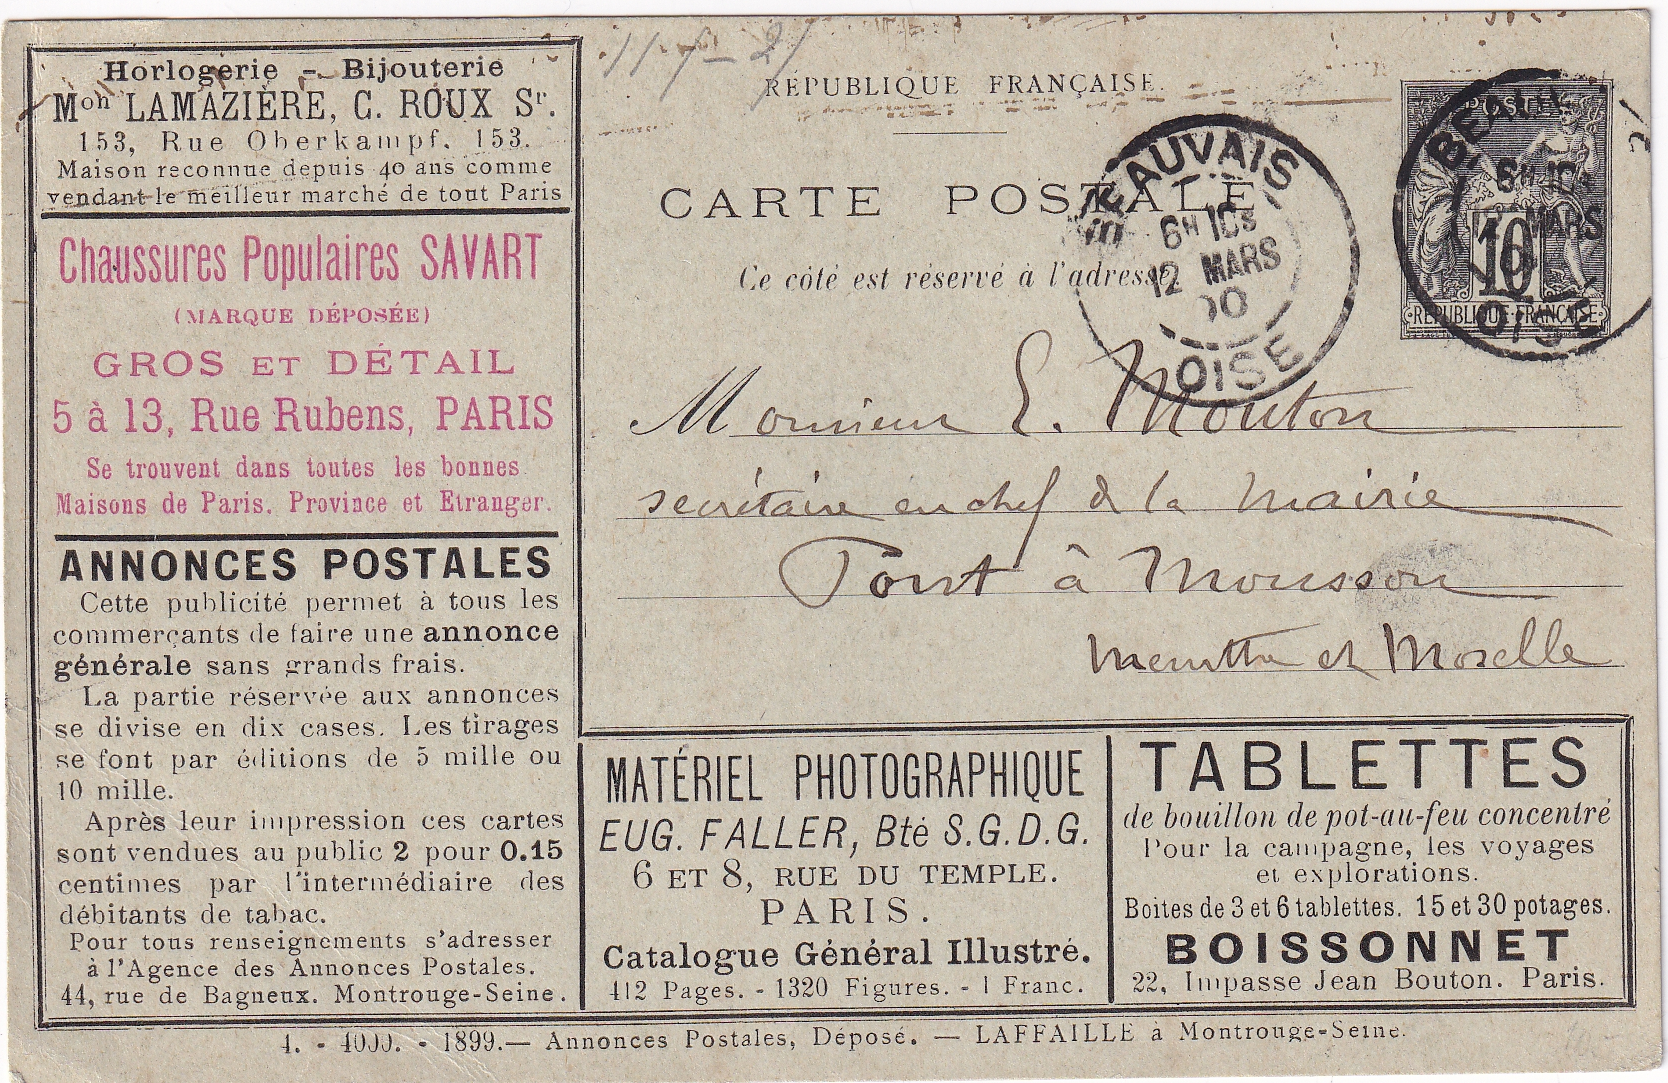 Horlogerie - Bijouterie
Mon LAMAZIÈRE, C. ROUX Sr.
153, Rue Oberkampf. 153.
Maison reconnue depuis 40 ans comme
vendant le meilleur marché de tout Paris
Chaussures Populaires SAVART
(MARQUE DÉPOSÉE)
GROS ET DÉTAIL
5 à 13, Rue Rubens, PARIS
Se trouvent dans toutes les bonnes
Maisons de Paris. Province et Etranger.
ANNONCES POSTALES
Cette publicité permet à tous les
commerçants de faire une annonce
générale sans grands frais.
La partie réservée aux annonces
se divise en dix cases. Les tirages
se font par éditions de 5 mille ou
10 mille.
Après leur impression ces cartes
sont vendues au public 2 pour 0.15
centimes par l'intermédiaire des
débitants de tabac.
Pour tous renseignements s'adresser
à l'Agence des Annonces Postales.
44, rue de Bagneux. Montrouge-Seine.
RÉPUBLIQUE FRANÇAISE.
CARTE POSTALE
Ce côté est réservé à l'adresse.
BEAUVAIS
6H 10S
12 MARS
00
OISE
POSTES
10
RÉPUBLIQUE FRANÇAISE
BEAUV
6H 10S
MARS
OISE
Monsieur E. Mouton
secrétaire en chef de la Mairie
Pont à Mousson
Meurthe et Moselle
MATÉRIEL PHOTOGRAPHIQUE
EUG. FALLER, Bté S.G.D.G.
6 ET 8, RUE DU TEMPLE.
PARIS.
Catalogue Général Illustré.
412 Pages. - 1320 Figures. - 1 Franc.
TABLETTES
de bouillon de pot-au-feu concentré
Pour la campagne, les voyages
et explorations.
Boites de 3 et 6 tablettes. 15 et 30 potages.
BOISSONNET
22, Impasse Jean Bouton. Paris.
4. - 4000. - 1899. — Annonces Postales, Déposé. — LAFFAILLE à Montrouge-Seine.